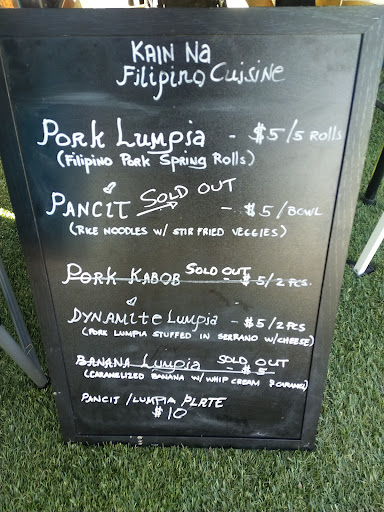 KAIN NA
Filipino Cuisine
Pork Lumpia - $5/5 Rolls
(Filipino Pork Spring Rolls)
Pancit Sold Out - $5/Bowl
(Rice Noodles w/ Stir Fried Veggies)
Pork Kabob Sold Out - $5/2 pcs.
Dynamite Lumpia - $5/2 pcs
(Pork Lumpia Stuffed in Serrano w/Cheese)
Banana Lumpia Sold Out - $5
(Caramelized Banana w/ Whip Cream &
Pancit/Lumpia Plate
$10